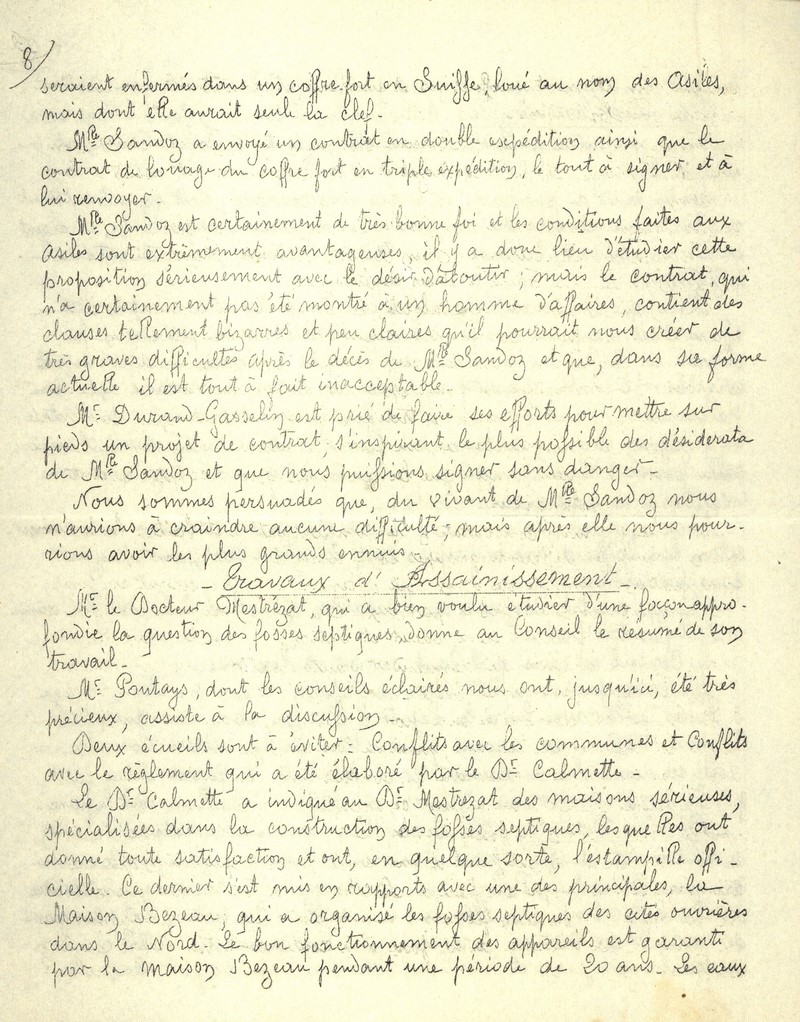 8/
seraient enfermés dans un coffre-fort en Suisse, loué au nom des Asiles,
mais dont elle aurait seule la clef.
Mlle Sandoz a envoyé un contrat en double expédition ainsi que le
contrat de louage du coffre fort en triple expédition, le tout à signer et à
lui renvoyer.
Mlle Sandoz est certainement de très bonne foi et les conditions faites aux
Asiles sont extrêmement avantageuses, il y a donc lieu d'étudier cette
proposition sérieusement avec le désir d'aboutir ; mais le contrat, qui
n'a certainement pas été montré à un homme d'affaires, contient des
clauses tellement bizarres et peu claires qu'il pourrait nous créer de
très graves difficultés après le décès de Mlle Sandoz et que, dans sa forme
actuelle il est tout à fait inacceptable.
Mr Durand-Gasselin est prié de faire ses efforts pour mettre sur
pieds un projet de contrat, s'inspirant le plus possible des désiderata
de Mlle Sandoz et que nous puissions signer sans danger.
Nous sommes persuadés que, du vivant de Mlle Sandoz nous
n'aurions à craindre aucune difficulté, mais après elle nous pour-
rions avoir les plus grands ennuis.
- Travaux d'Assainissement -
Mr le Docteur Mestrézat, qui a bien voulu étudier d'une façon appro-
fondie la question des fosses septiques, donne au Conseil le résumé de son
travail.
Mr Pontays, dont les conseils éclairés nous ont, jusqu'ici, été très
précieux, assiste à la discussion.
Deux écueils sont à éviter : Conflits avec les communes et Conflits
avec le règlement qui a été élaboré par le Dr Calmette -
Le Dr Calmette a indiqué au Dr Mestrezat des maisons sérieuses,
spécialisées dans la construction des fosses septiques, lesquelles ont
donné toute satisfaction et ont, en quelque sorte, l'estampille offi-
cielle. Ce dernier s'est mis en rapports avec une des principales, la
Maison Bezeau, qui a organisé les fosses septiques des cités ouvrières
dans le Nord. Le bon fonctionnement des appareils est garanti
par la maison Bezeau pendant une période de 20 ans. Les eaux